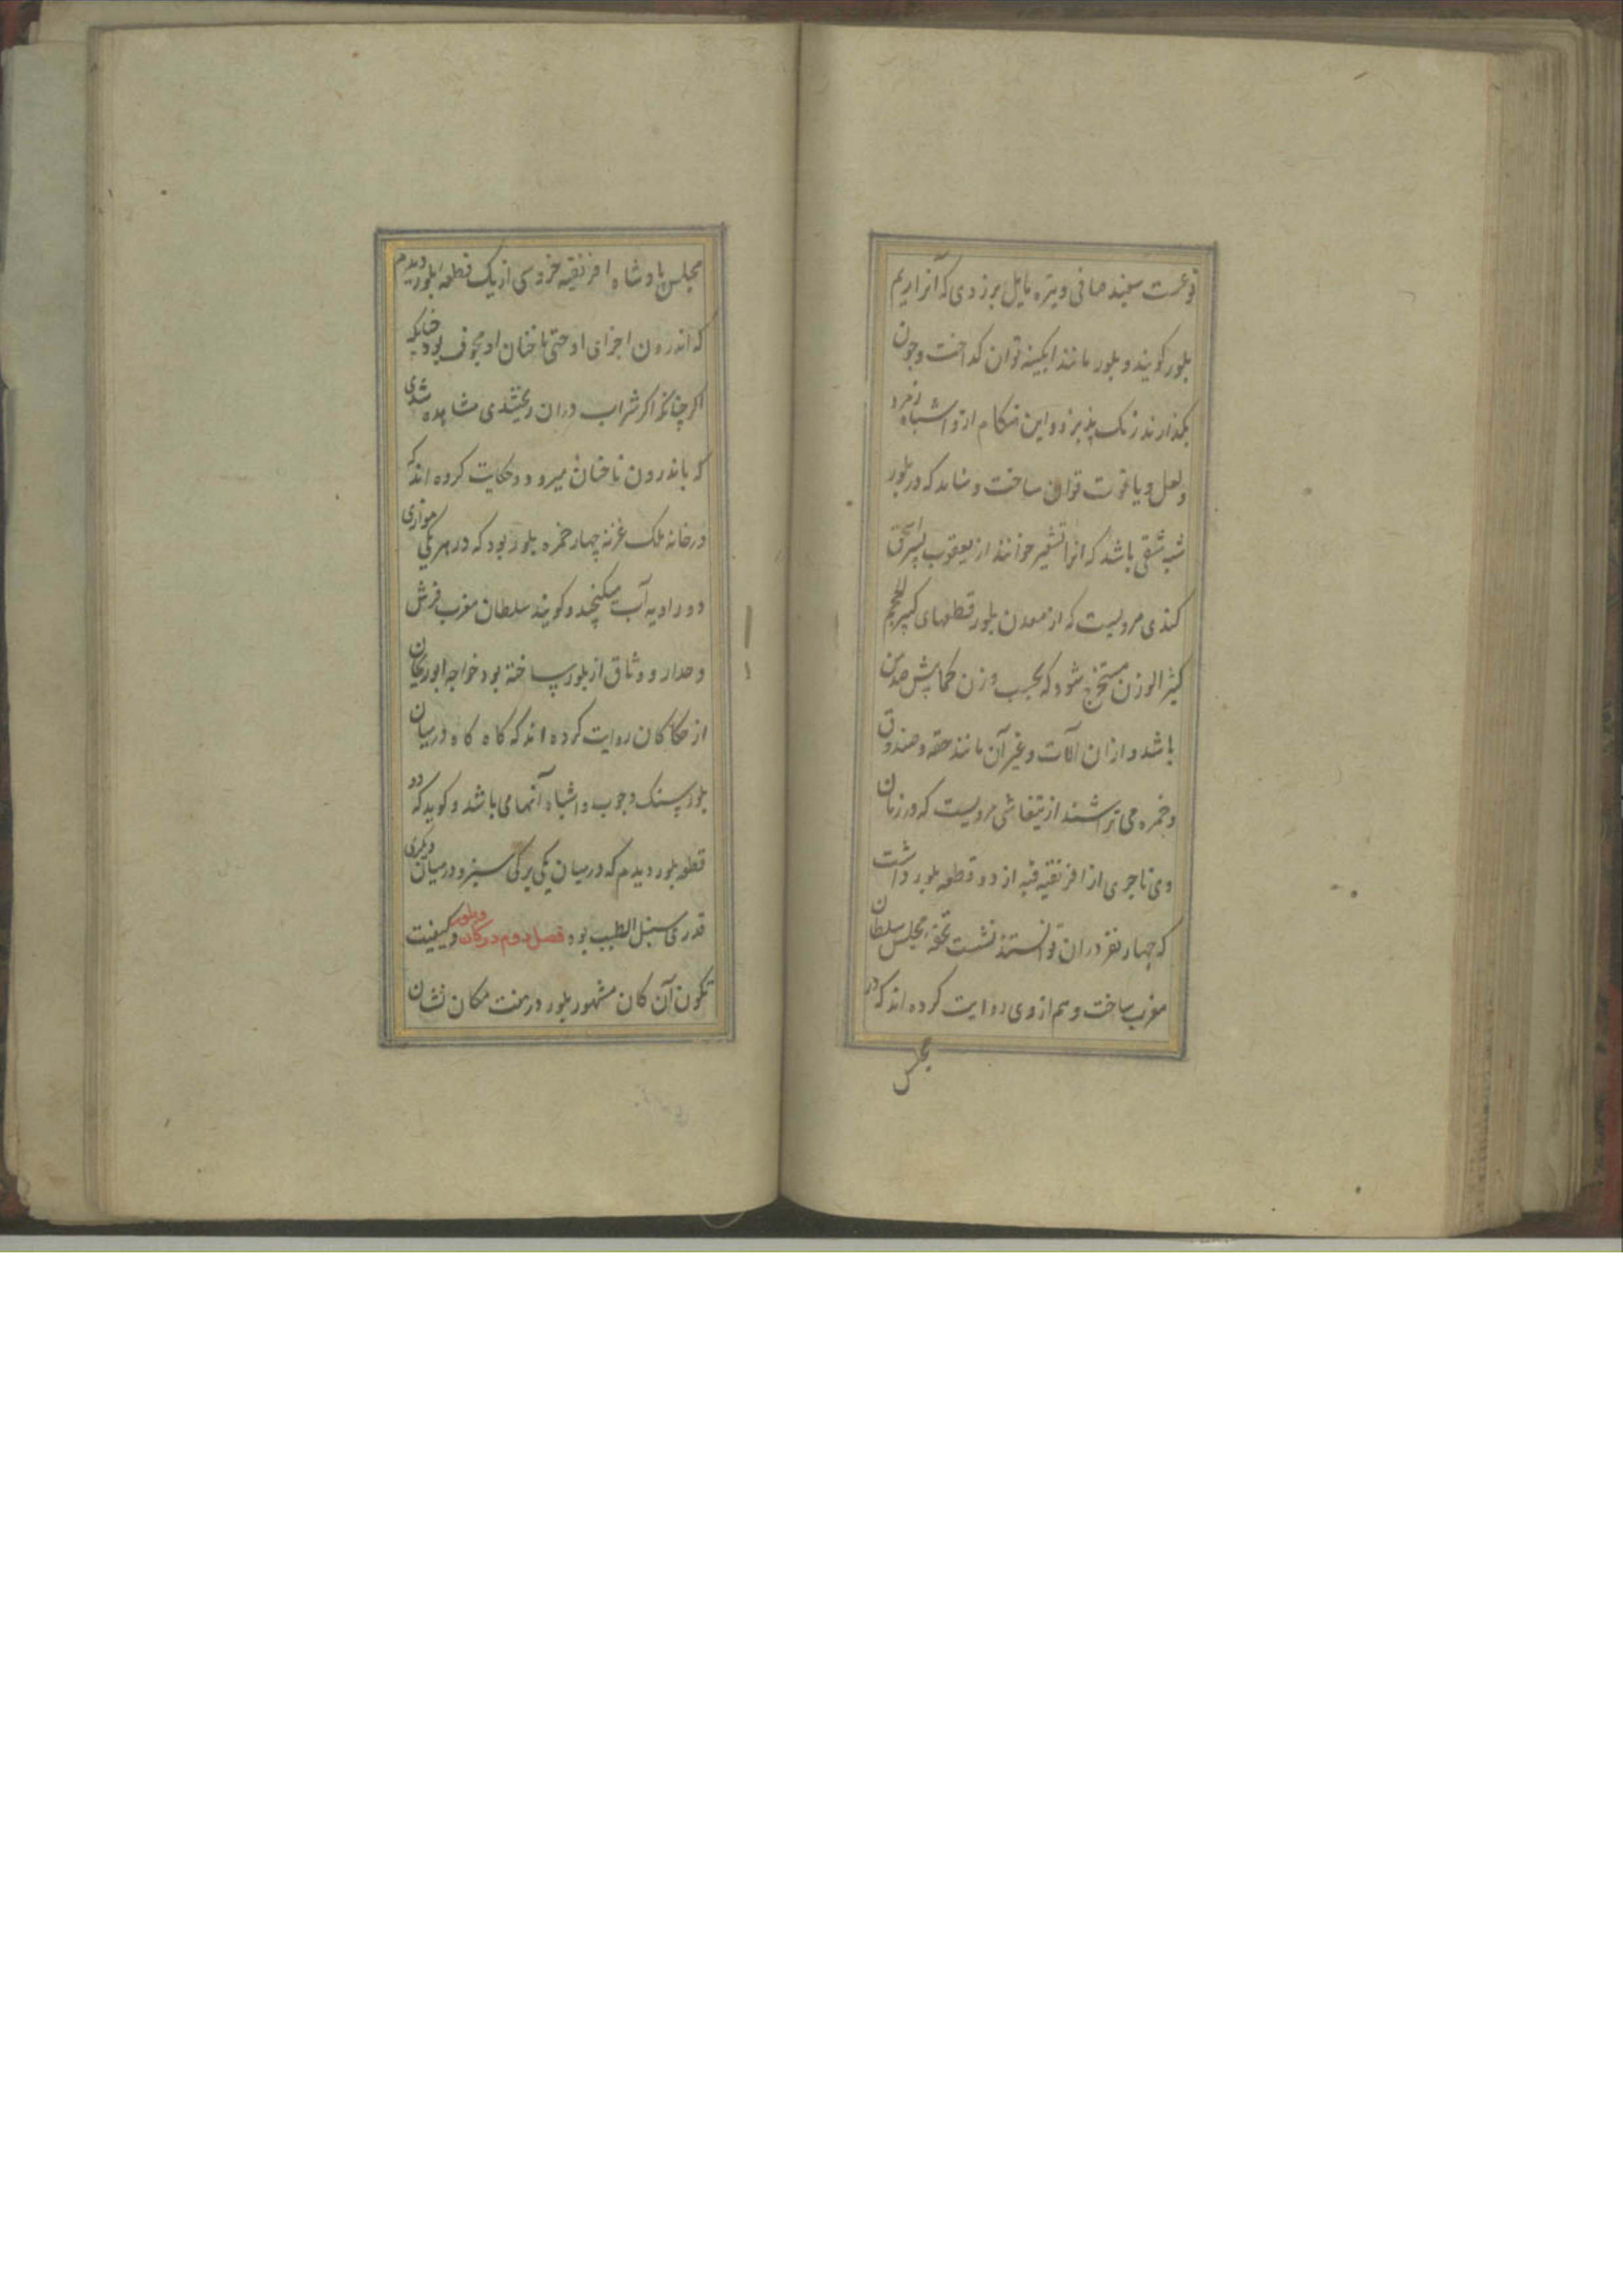 نوعست سفید صافی و تیره مایل بزردی که آنرا ریم
بلور کویند و بلور مانند ابکینه توان کداخت وچون
بکدازند رنک پذیرد و این هنکام ازو اشباه زمرد
ولعل ویاقوت توان ساخت و شاید که در بلور
شبه شقی باشد که انرا تشعیر خوانند از یعقوب پسر اسحق
کندی مرویست که از معدن بلور قطعهای کبیر الحجم
کثیر الوزن مستخرج شود که بحسب وزن کمابیش صد من
باشد و ازان الات و غیر آن مانند حقه و صندوق
وخمره می تراشند از تیفاشی مرویست که در زمان
وی تاجری از افریقیه قبه از دو قطعه بلور داشت
که چهار نفر دران توانستند نشست تحفه مجلس سلطان
مغرب ساخت و هم از وی روایت کرده اند که در
مجلس
مجلس پادشاه افریقیه خروسی از یک قطعه بلور دیدم
که اندرون اجزای او حتی ناخنان او مجوف بود چنانکه
اکر چنانکه اکر شراب دران ریختندی مشاهده شدی
که باندرون ناخنان میرود و حکایت کرده اند که
در خانه ملک غزنه چهار خمره بلور بود که در هر یکی موازی
دو راویه آب میکنجد و کویند سلطان مغرب فرش
وجدار و وثاق از بلور ساخته بود خواجه ابوریحان
از حکاکان روایت کرده اند که کاه کاه در میان
بلور سنک و چوب و اشباه آنها می باشد و کوید که دو
قطعه بلور دیدم که در میان یکی برکی سبز و در میان دیکری
قدری سنبل الطیب بود فصل دوم در کان و بلور و کیفیت
تکون آن کان مشهور بلور در هفت مکان نشان